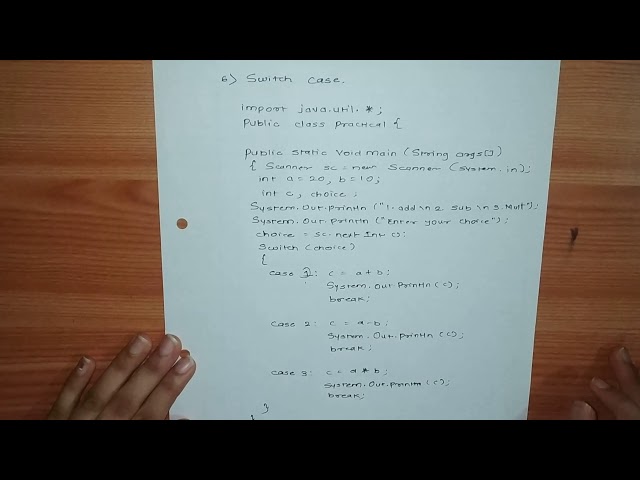 6) Switch case.
import java.util.*;
Public class Practical {
Public static void main (String args[])
{ Scanner sc = new Scanner (System.in);
int a = 20, b = 10;
int c, choice ;
System.out.println ("1. add \n 2 Sub \n 3. Mult");
System.out.println ("Enter your choice");
choice = sc.next Int ();
Switch (choice)
{
case 1: c = a + b;
System.out.println (c);
break;
case 2: c = a - b;
System.out.println (c);
break;
case 3: c = a * b;
System.out.println (c);
break;
}